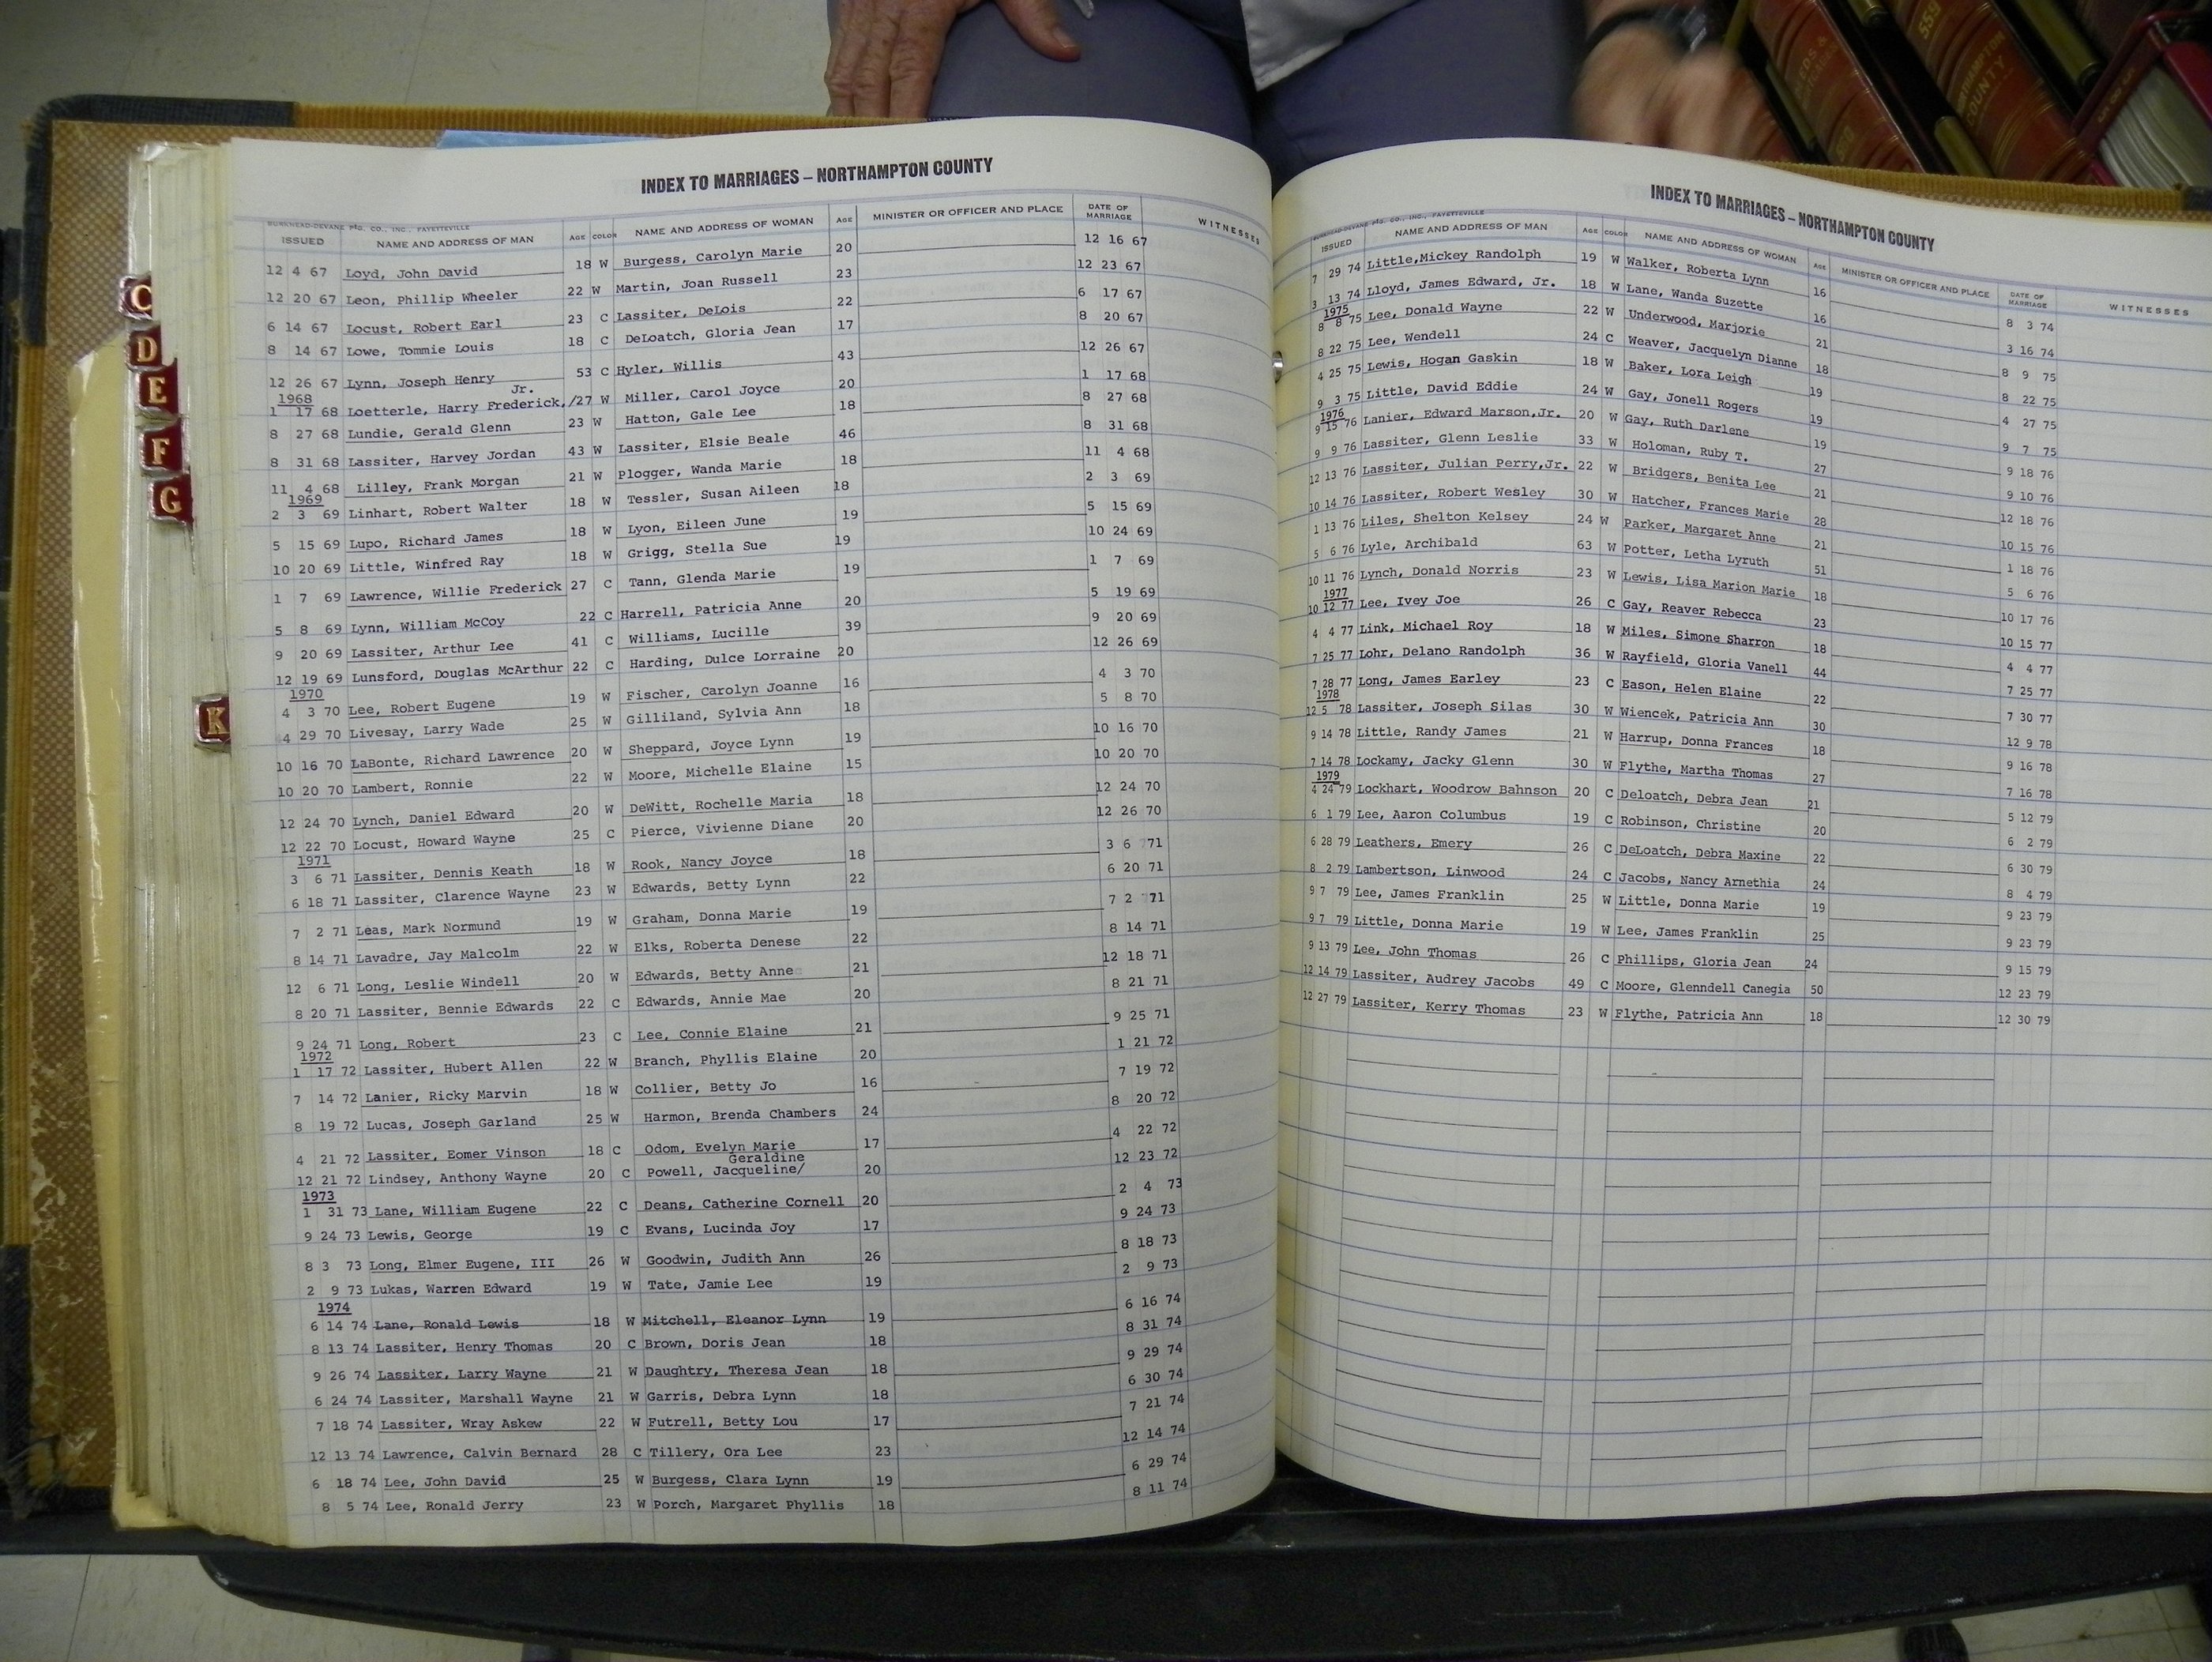 INDEX TO MARRIAGES – NORTHAMPTON COUNTY
BURKHEAD-DEVANE PTG. CO., INC., FAYETTEVILLE
ISSUED NAME AND ADDRESS OF MAN AGE COLOR NAME AND ADDRESS OF WOMAN AGE MINISTER OR OFFICER AND PLACE DATE OF MARRIAGE WITNESSES
12 4 67 Loyd, John David 18 W Burgess, Carolyn Marie 20 12 16 67
12 20 67 Leon, Phillip Wheeler 22 W Martin, Joan Russell 23 12 23 67
6 14 67 Locust, Robert Earl 23 C Lassiter, DeLois 22 6 17 67
8 14 67 Lowe, Tommie Louis 18 C DeLoatch, Gloria Jean 17 8 20 67
12 26 67 Lynn, Joseph Henry 53 C Hyler, Willis 43 12 26 67
1968 Jr.
1 17 68 Loetterle, Harry Frederick,/27 W Miller, Carol Joyce 20 1 17 68
8 27 68 Lundie, Gerald Glenn 23 W Hatton, Gale Lee 18 8 27 68
8 31 68 Lassiter, Harvey Jordan 43 W Lassiter, Elsie Beale 46 8 31 68
11 4 68 Lilley, Frank Morgan 21 W Plogger, Wanda Marie 18 11 4 68
1969
2 3 69 Linhart, Robert Walter 18 W Tessler, Susan Aileen 18 2 3 69
5 15 69 Lupo, Richard James 18 W Lyon, Eileen June 19 5 15 69
10 20 69 Little, Winfred Ray 18 W Grigg, Stella Sue 19 10 24 69
1 7 69 Lawrence, Willie Frederick 27 C Tann, Glenda Marie 19 1 7 69
5 8 69 Lynn, William McCoy 22 C Harrell, Patricia Anne 20 5 19 69
9 20 69 Lassiter, Arthur Lee 41 C Williams, Lucille 39 9 20 69
12 19 69 Lunsford, Douglas McArthur 22 C Harding, Dulce Lorraine 20 12 26 69
1970
4 3 70 Lee, Robert Eugene 19 W Fischer, Carolyn Joanne 16 4 3 70
4 29 70 Livesay, Larry Wade 25 W Gilliland, Sylvia Ann 18 5 8 70
10 16 70 LaBonte, Richard Lawrence 20 W Sheppard, Joyce Lynn 19 10 16 70
10 20 70 Lambert, Ronnie 22 W Moore, Michelle Elaine 15 10 20 70
12 24 70 Lynch, Daniel Edward 20 W DeWitt, Rochelle Maria 18 12 24 70
12 22 70 Locust, Howard Wayne 25 C Pierce, Vivienne Diane 20 12 26 70
1971
3 6 71 Lassiter, Dennis Keath 18 W Rook, Nancy Joyce 18 3 6 71
6 18 71 Lassiter, Clarence Wayne 23 W Edwards, Betty Lynn 22 6 20 71
7 2 71 Leas, Mark Normund 19 W Graham, Donna Marie 19 7 2 71
8 14 71 Lavadre, Jay Malcolm 22 W Elks, Roberta Denese 22 8 14 71
12 6 71 Long, Leslie Windell 20 W Edwards, Betty Anne 21 12 18 71
8 20 71 Lassiter, Bennie Edwards 22 C Edwards, Annie Mae 20 8 21 71
9 24 71 Long, Robert 23 C Lee, Connie Elaine 21 9 25 71
1972
1 17 72 Lassiter, Hubert Allen 22 W Branch, Phyllis Elaine 20 1 21 72
7 14 72 Lanier, Ricky Marvin 18 W Collier, Betty Jo 16 7 19 72
8 19 72 Lucas, Joseph Garland 25 W Harmon, Brenda Chambers 24 8 20 72
4 21 72 Lassiter, Eomer Vinson 18 C Odom, Evelyn Marie 17 4 22 72
Geraldine
12 21 72 Lindsey, Anthony Wayne 20 C Powell, Jacqueline/ 20 12 23 72
1973
1 31 73 Lane, William Eugene 22 C Deans, Catherine Cornell 20 2 4 73
9 24 73 Lewis, George 19 C Evans, Lucinda Joy 17 9 24 73
8 3 73 Long, Elmer Eugene, III 26 W Goodwin, Judith Ann 26 8 18 73
2 9 73 Lukas, Warren Edward 19 W Tate, Jamie Lee 19 2 9 73
1974
6 14 74 Lane, Ronald Lewis 18 W Mitchell, Eleanor Lynn 19 6 16 74
8 13 74 Lassiter, Henry Thomas 20 C Brown, Doris Jean 18 8 31 74
9 26 74 Lassiter, Larry Wayne 21 W Daughtry, Theresa Jean 18 9 29 74
6 24 74 Lassiter, Marshall Wayne 21 W Garris, Debra Lynn 18 6 30 74
7 18 74 Lassiter, Wray Askew 22 W Futrell, Betty Lou 17 7 21 74
12 13 74 Lawrence, Calvin Bernard 28 C Tillery, Ora Lee 23 12 14 74
6 18 74 Lee, John David 25 W Burgess, Clara Lynn 19 6 29 74
8 5 74 Lee, Ronald Jerry 23 W Porch, Margaret Phyllis 18 8 11 74
C
D
E
F
G
K
INDEX TO MARRIAGES – NORTHAMPTON COUNTY
BURKHEAD-DEVANE PTG. CO., INC., FAYETTEVILLE
ISSUED NAME AND ADDRESS OF MAN AGE COLOR NAME AND ADDRESS OF WOMAN AGE MINISTER OR OFFICER AND PLACE DATE OF MARRIAGE WITNESSES
7 29 74 Little,Mickey Randolph 19 W Walker, Roberta Lynn 16 8 3 74
3 13 74 Lloyd, James Edward, Jr. 18 W Lane, Wanda Suzette 16 3 16 74
1975
8 8 75 Lee, Donald Wayne 22 W Underwood, Marjorie 21 8 9 75
8 22 75 Lee, Wendell 24 C Weaver, Jacquelyn Dianne 18 8 22 75
4 25 75 Lewis, Hogan Gaskin 18 W Baker, Lora Leigh 19 4 27 75
9 3 75 Little, David Eddie 24 W Gay, Jonell Rogers 19 9 7 75
1976
9 15 76 Lanier, Edward Marson,Jr. 20 W Gay, Ruth Darlene 19 9 18 76
9 9 76 Lassiter, Glenn Leslie 33 W Holoman, Ruby T. 27 9 10 76
12 13 76 Lassiter, Julian Perry,Jr. 22 W Bridgers, Benita Lee 21 12 18 76
10 14 76 Lassiter, Robert Wesley 30 W Hatcher, Frances Marie 28 10 15 76
1 13 76 Liles, Shelton Kelsey 24 W Parker, Margaret Anne 21 1 18 76
5 6 76 Lyle, Archibald 63 W Potter, Letha Lyruth 51 5 6 76
10 11 76 Lynch, Donald Norris 23 W Lewis, Lisa Marion Marie 18 10 17 76
1977
10 12 77 Lee, Ivey Joe 26 C Gay, Reaver Rebecca 23 10 15 77
4 4 77 Link, Michael Roy 18 W Miles, Simone Sharron 18 4 4 77
7 25 77 Lohr, Delano Randolph 36 W Rayfield, Gloria Vanell 44 7 25 77
7 28 77 Long, James Earley 23 C Eason, Helen Elaine 22 7 30 77
1978
12 5 78 Lassiter, Joseph Silas 30 W Wiencek, Patricia Ann 30 12 9 78
9 14 78 Little, Randy James 21 W Harrup, Donna Frances 18 9 16 78
7 14 78 Lockamy, Jacky Glenn 30 W Flythe, Martha Thomas 27 7 16 78
1979
4 24 79 Lockhart, Woodrow Bahnson 20 C Deloatch, Debra Jean 21 5 12 79
6 1 79 Lee, Aaron Columbus 19 C Robinson, Christine 20 6 2 79
6 28 79 Leathers, Emery 26 C DeLoatch, Debra Maxine 22 6 30 79
8 2 79 Lambertson, Linwood 24 C Jacobs, Nancy Arnethia 24 8 4 79
9 7 79 Lee, James Franklin 25 W Little, Donna Marie 19 9 23 79
9 7 79 Little, Donna Marie 19 W Lee, James Franklin 25 9 23 79
9 13 79 Lee, John Thomas 26 C Phillips, Gloria Jean 24 9 15 79
12 14 79 Lassiter, Audrey Jacobs 49 C Moore, Glenndell Canegia 50 12 23 79
12 27 79 Lassiter, Kerry Thomas 23 W Flythe, Patricia Ann 18 12 30 79
559
NORTHAMPTON
COUNTY